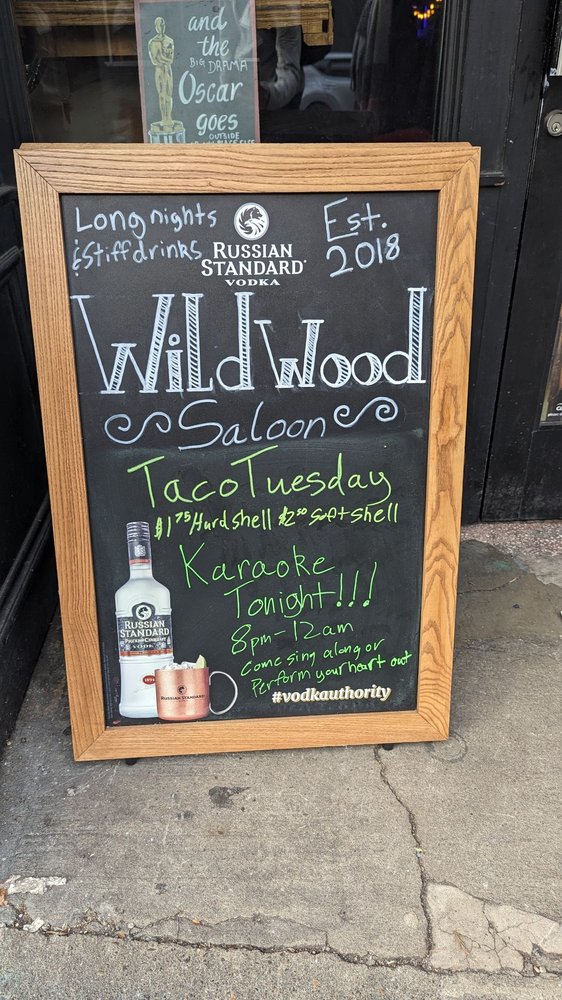 and
the
BIG DRAMA
Oscar
goes
OUTSIDE
Long nights
& Stiff drinks
RUSSIAN
STANDARD
VODKA
Est.
2018
WildWood
Saloon
Taco Tuesday
$1.75 Hard shell $2.50 Soft shell
Karaoke
Tonight!!!
8pm-12am
Come sing along or
Perform your heart out
#vodkauthority
RUSSIAN
STANDARD
VODKA
RUSSIAN STANDARD